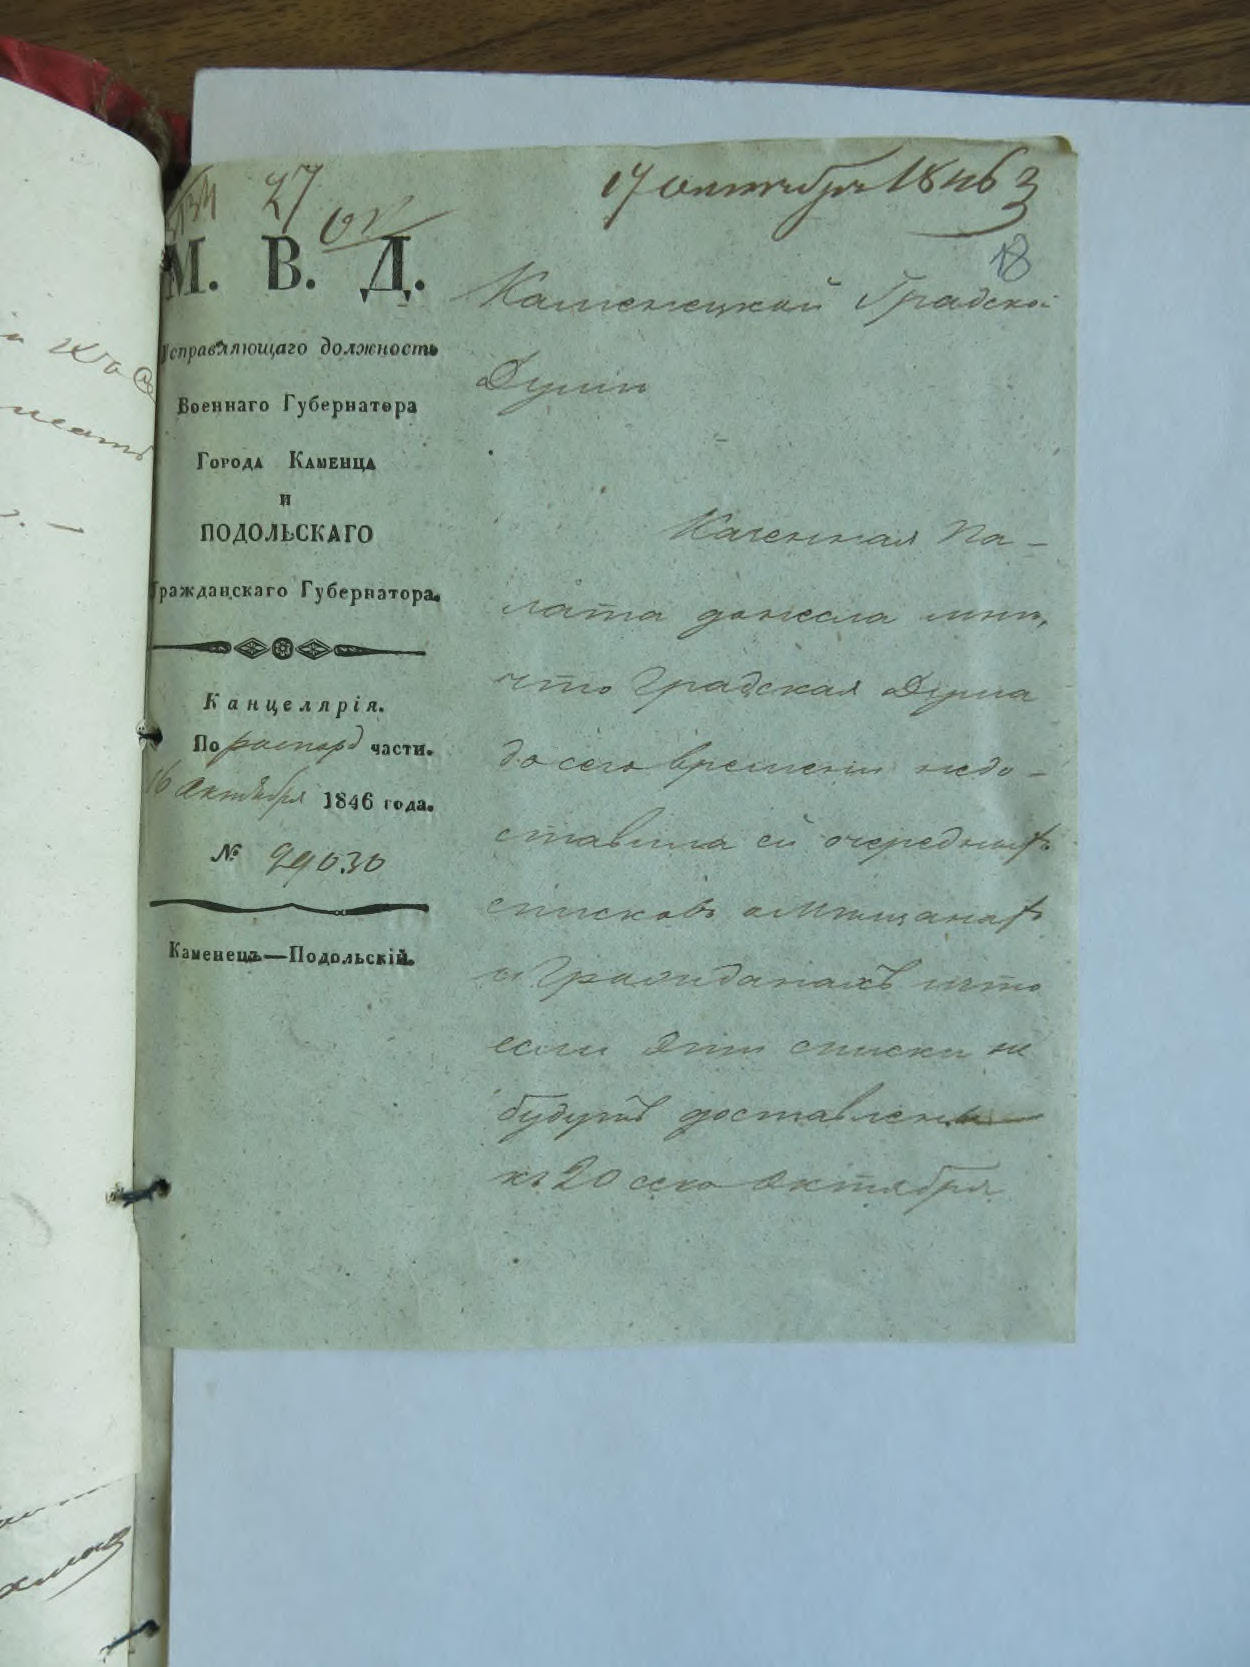 27
17 октября 1846
18
М. В. Д.
Исправляющаго должность
Военнаго Губернатора
Города Каменца
и
ПОДОЛЬСКАГО
Гражданскаго Губернатора.
Канцелярія.
По распоряд части.
16 Октября 1846 года.
№ 29030
Каменецъ—Подольскій.
Каменецкой Градской
Думѣ
Казенная Па-
лата донесла мнѣ,
что Градская Дума
до сего времени недо-
ставила ей очередныхъ
списковъ о Мѣщанахъ
и Гражданахъ и что
если эти списки не
будутъ доставлены
къ 20 сего Октября